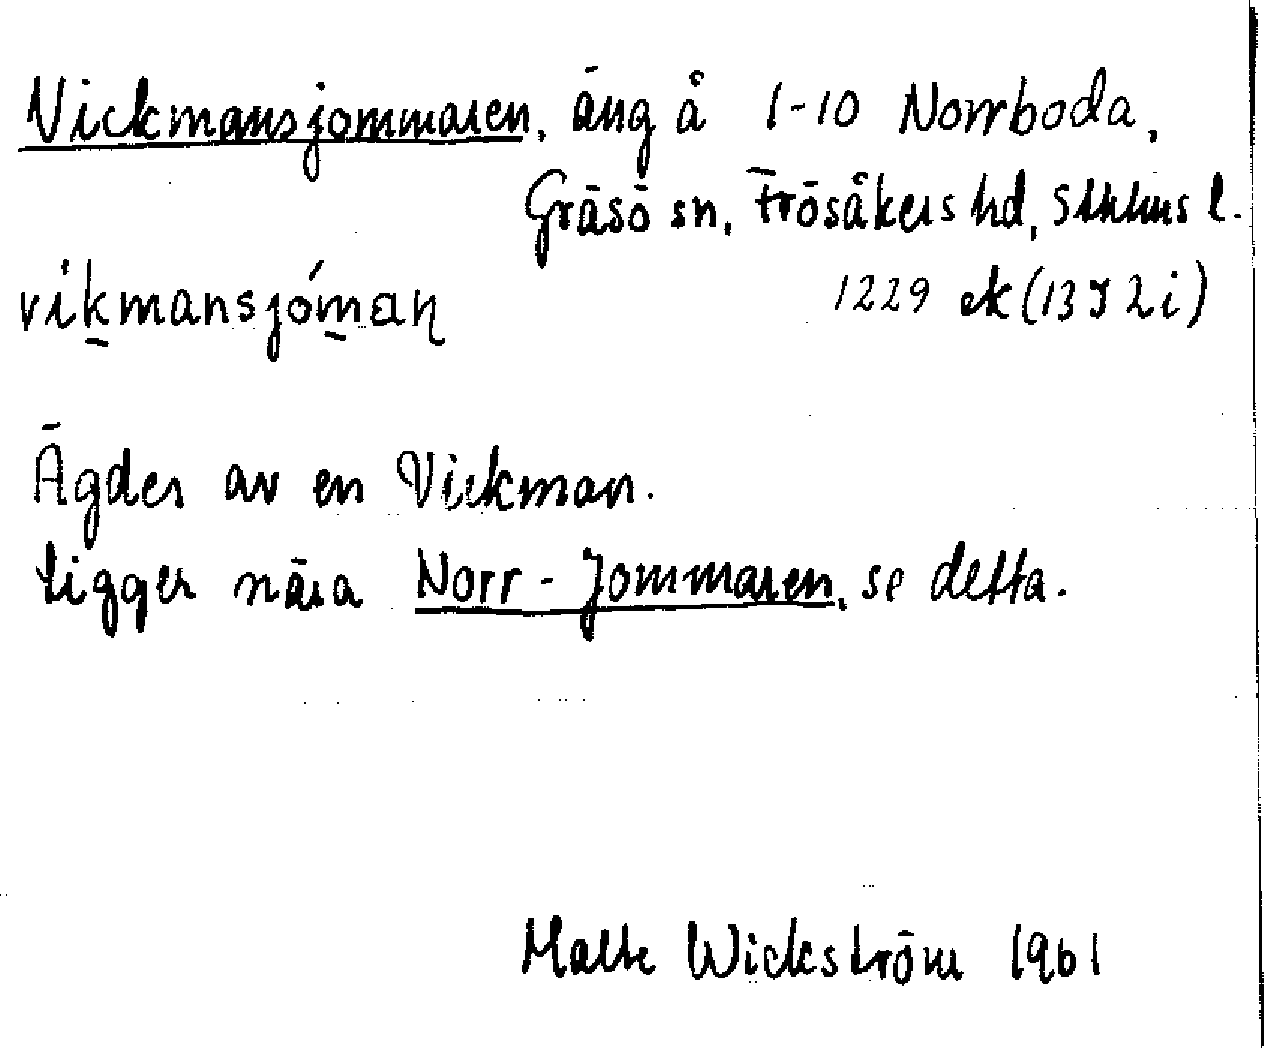 Vickmansjommaren, äng å 1-10 Norrboda,
Gräsö sn, Frösåkers hd, Sthlms l.
vikmansjóman 1229 ek (13 I 2i)
Ägdes av en Vickman.
Ligger nära Norr-Jommaren, se detta.
Malte Wickström 1961